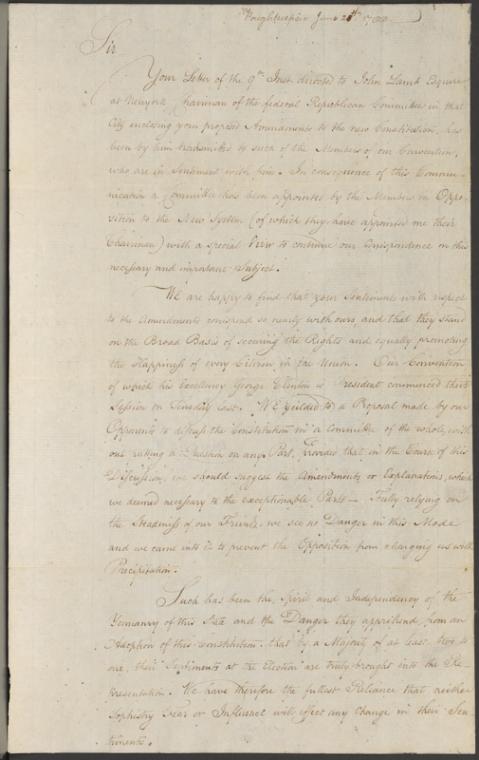 Poughkeepsie June 21st 1788
Sir
Your Letter of the 9th Inst. directed to John Lamb Esquire
at Newyork, Chairman of the federal Republican Committee in that
City enclosing your proposed Amendments to the new Constitution, has
been by him transmitted to such of the Members of our Convention,
who are in Sentiment with him. In consequence of this Commu-
nication a Committee has been appointed by the Members in Oppo-
sition to the New System (of which they have appointed me their
Chairman) with a special View to continue our Correspondence on this
necessary and important Subject.
We are happy to find that your Sentiments with respect
to the Amendments correspond so nearly with ours, and that they stand
on the Broad Basis of securing the Rights and equally promoting
the Happiness of every Citizen in the Union. Our Convention
of which his Excellency George Clinton is President commenced their
Session on Tuesday last. We yielded to a Proposal made by our
Opponents to discuss the Constitution in a committee of the whole, with
out putting a Question on any Part, Provided that in the Course of this
Discussion, we should suggest the Amendments or Explanations, which
we deemed necessary to the exceptionable Parts — Fully relying on
the Steadiness of our Friends, we see no Danger in this Mode
and we came into it to prevent the Opposition from charging us with
Precipitation.
Such has been the Spirit and Independency of the
Yeomanry of this State and the Danger they apprehend from an
Adoption of this Constitution. that by a Majority of at least two to
one, their Sentiments at the Election are truly brought into the Re-
presentation. We have therefore the fullest Reliance that neither
Sophistry Fear or Influence will effect any Change in their Sen-
timents.